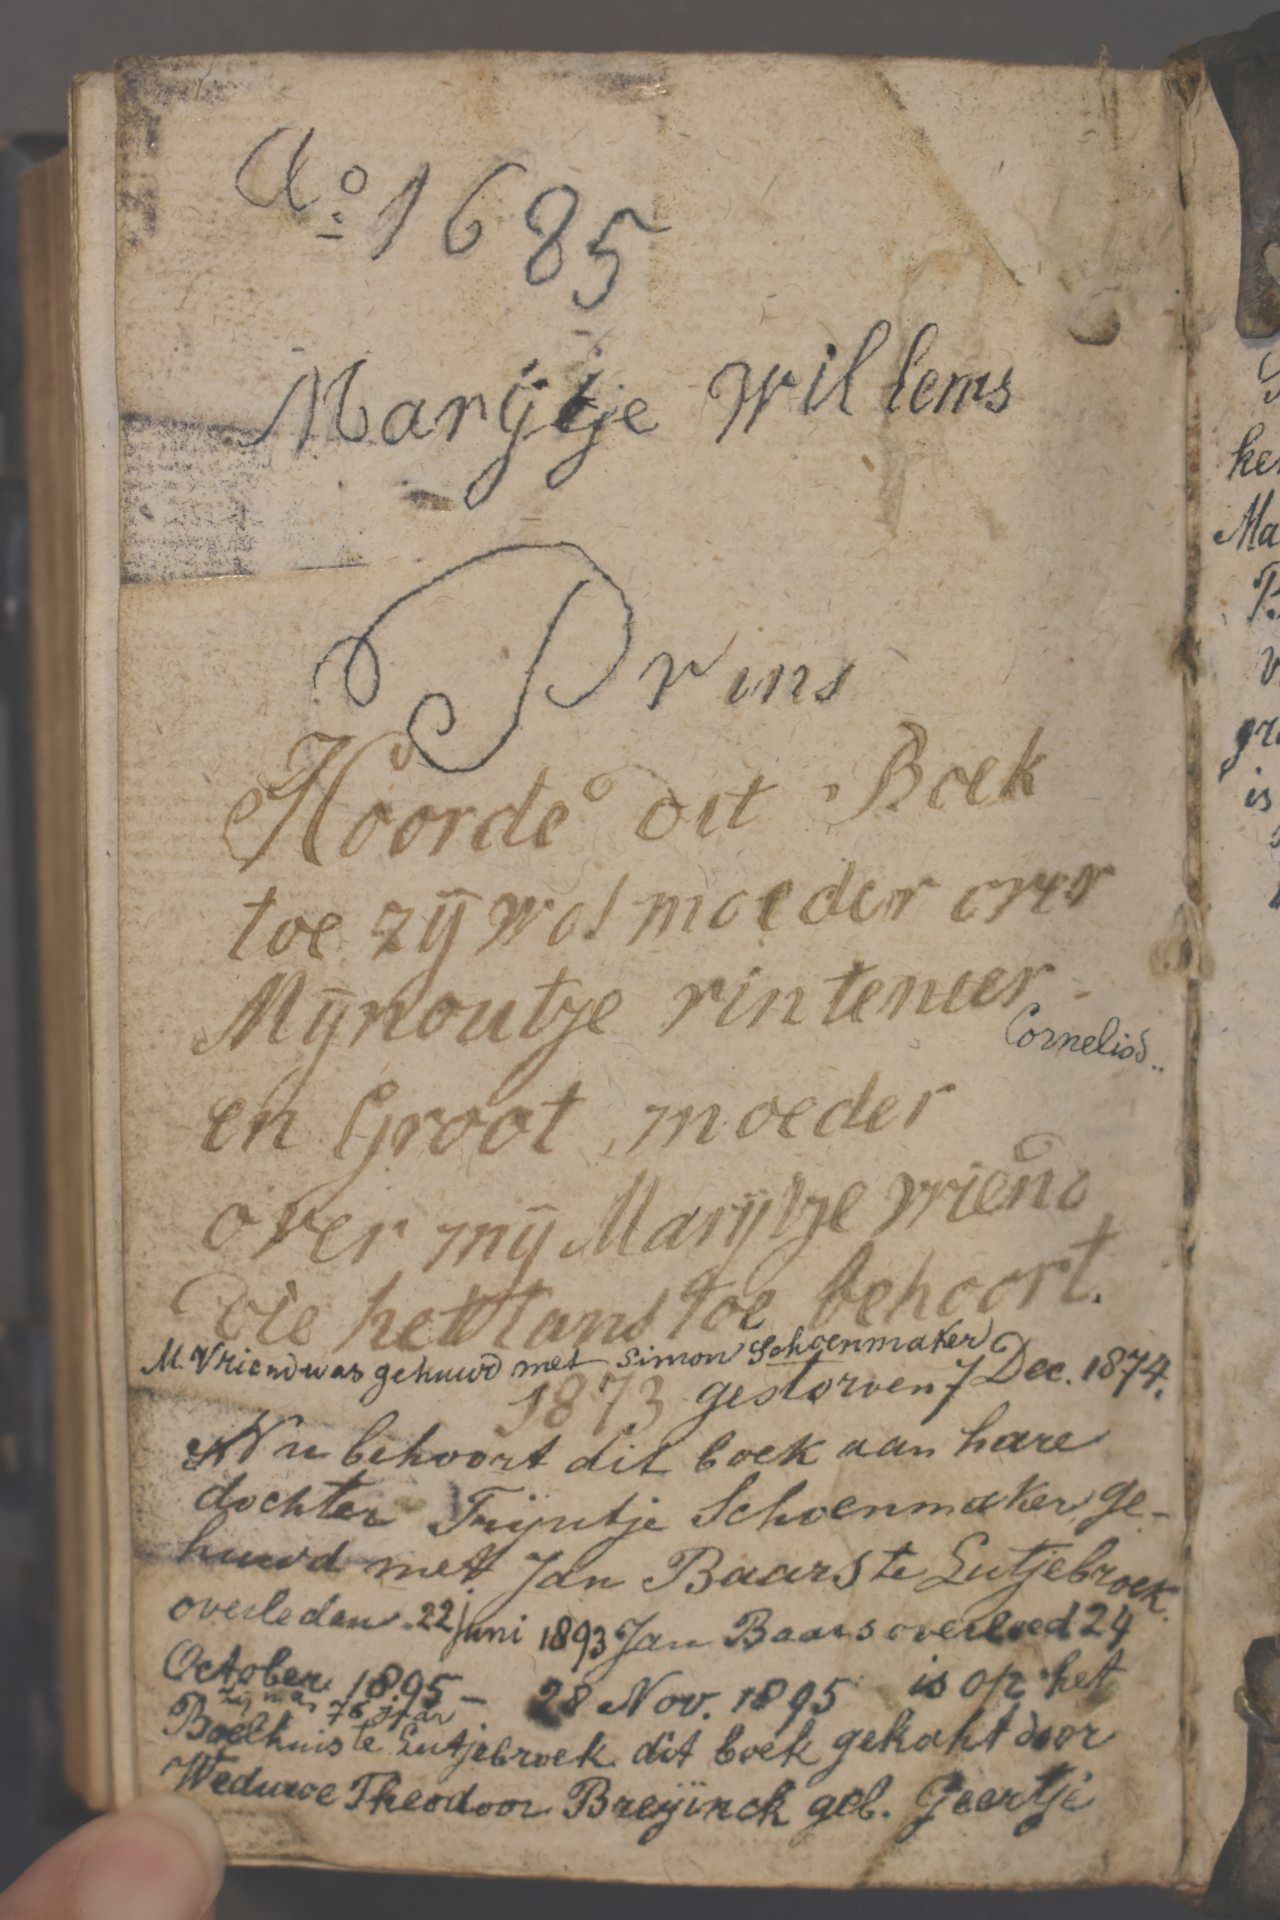 Ao 1685
Marÿtje Willems
Prins
Hoorde dit Boek
toe zÿ was moeder over
Mÿnoutje rintenuer
Cornelisd..
en Groot moeder
over mÿ Marÿtje vriend
die het tans toe behoort.
M. Vriend was gehuwd met Simon Schoenmaker
1873 gestorven 7 Dec. 1874.
Nu behoort dit boek aan hare
dochter Trijntje Schoenmaker, ge-
huwd met Jan Baars te Lutjebroek.
overleden 22 Juni 1893 Jan Baars overleed 24
October 1895 - 28 Nov. 1895 is op het
zij was 76 jaar
Boelhuis te Lutjebroek dit boek gekoht door
Weduwe Theodoor Breÿinck geb. Geertje
ken
Ma
gr
is